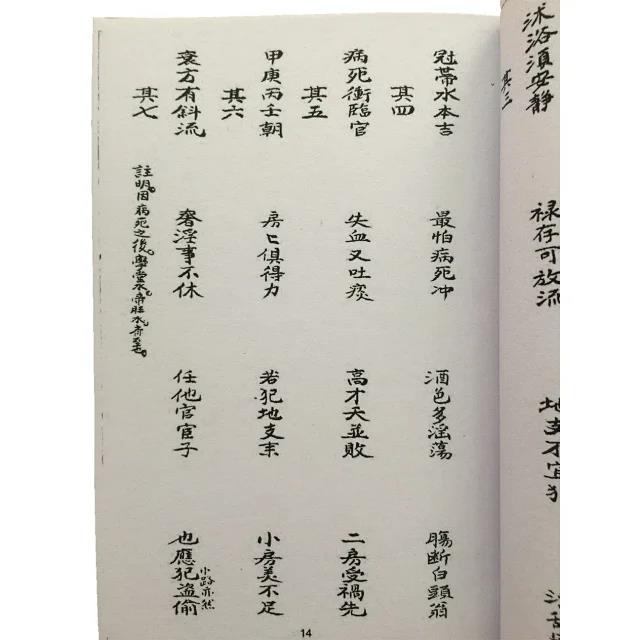 沐浴須安静 禄存可放流 地支不宜犯
其三
冠帯水本吉 最怕病死冲 酒色多淫蕩 腸断白頭翁
其四
病死衝臨官 失血又吐痰 高才夭並敗 二房受禍先
其五
甲庚丙壬朝 房匕俱得力 若犯地支来 小房美不足
其六
衰方有斜流 奢淫事不休 任他官宦子 也應犯盗偷 小路亦然
其七
註明。因病死之後。學堂水。帝旺水。亦至也。
14